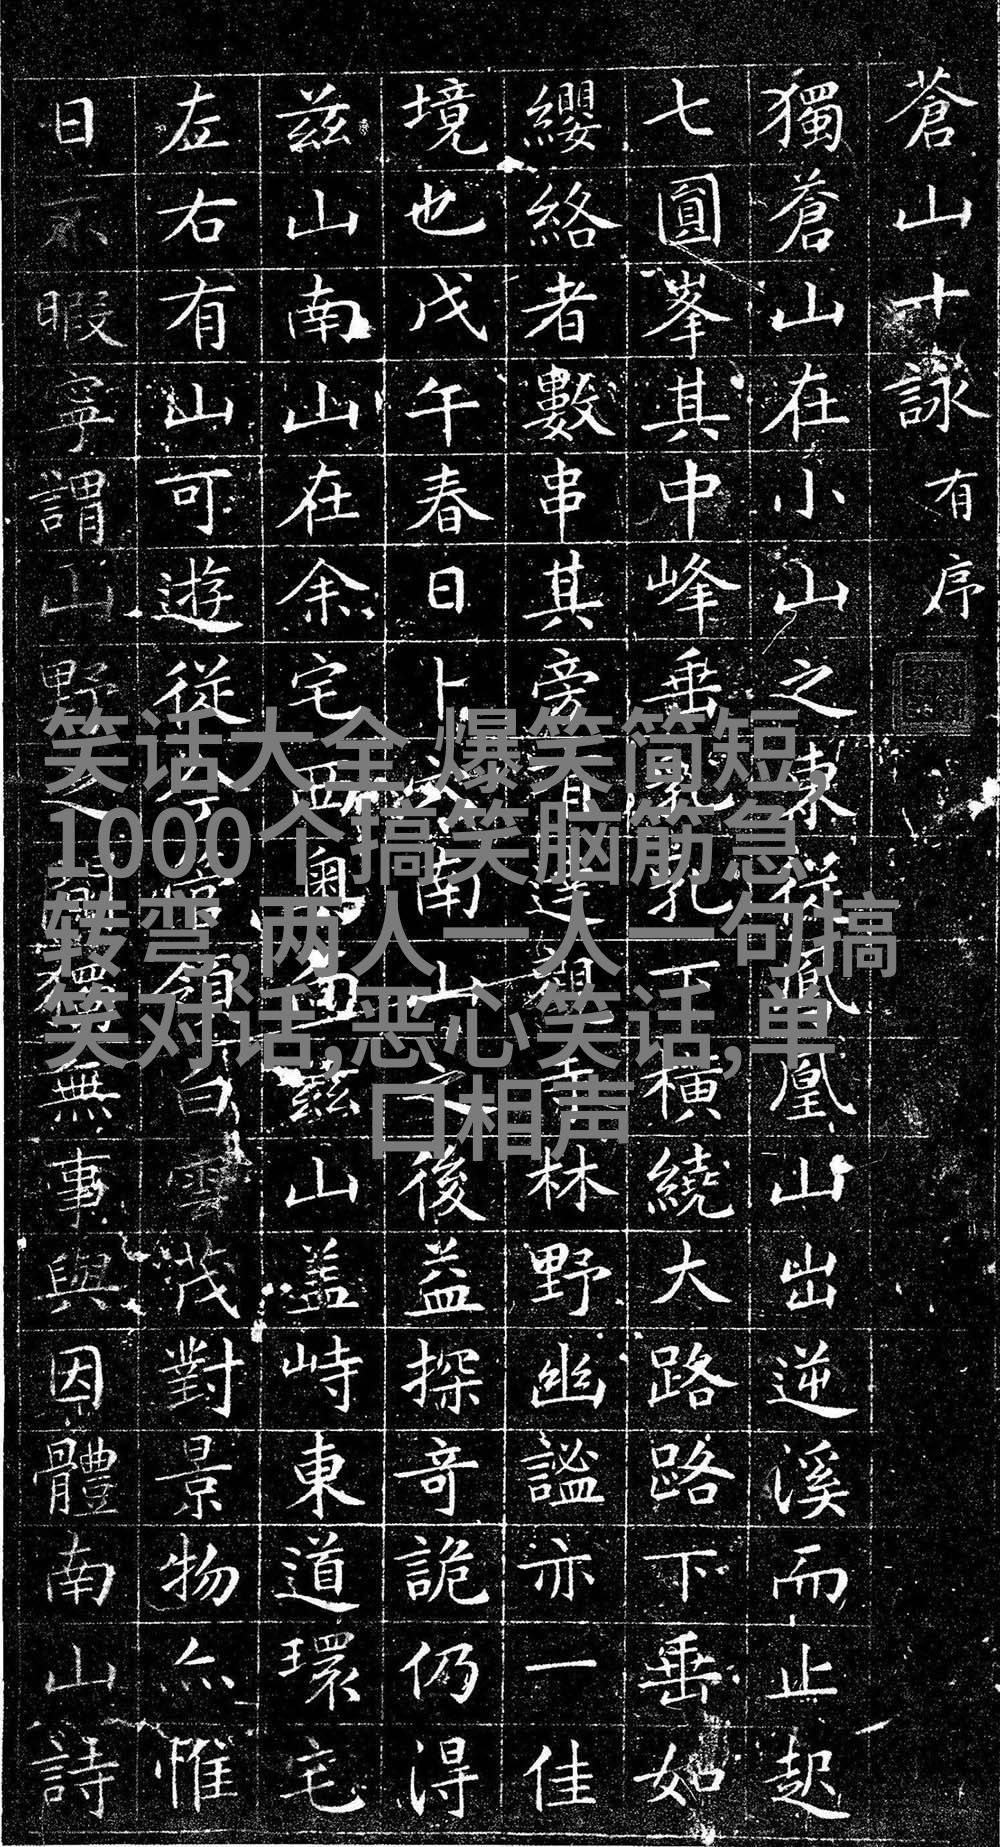 蒼山十詠有序
獨蒼山在小山之東從鳳凰山出逆溪而止起
七圓峯其中峰垂乳下橫繞大路路下垂如
纓絡者數串其旁皆林野幽謐亦一佳
境也戊午春日卜穴南山之後益探奇詭仍得
茲山南山在余宅西奧面茲山盖峙東道環宅
左右有山可遊從今倍領白雲茂對景物亦惟
日不暇寧謂山野之獨無事與因體南山詩
笑话大全 爆笑简短,
1000个搞笑脑筋急
转弯,两人一人一句搞
笑对话,恶心笑话,单
口相声